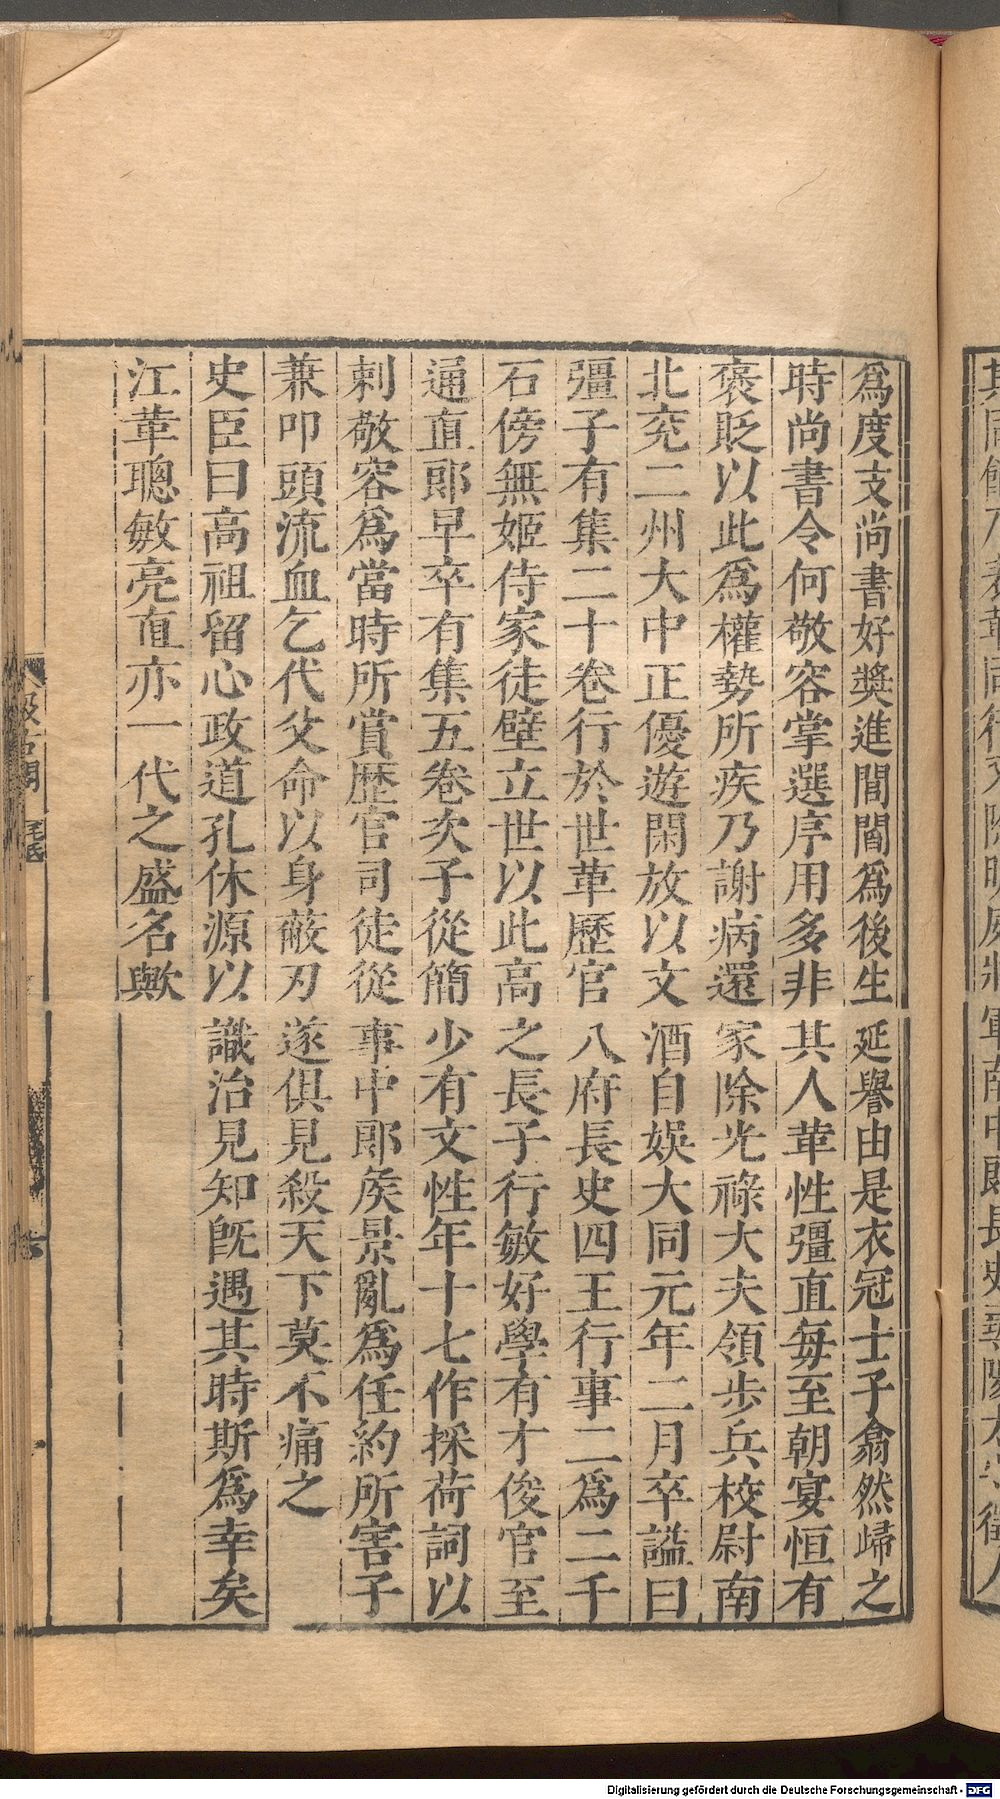 爲度支尚書好獎進閭閻爲後生延譽由是衣冠士子翕然歸之
時尚書令何敬容掌選序用多非其人革性彊直每至朝宴恒有
褒貶以此爲權勢所疾乃謝病還家除光祿大夫領步兵校尉南
北兖二州大中正優遊閑放以文酒自娛大同元年二月卒謚曰
彊子有集二十卷行於世革歷官八府長史四王行事二爲二千
石傍無姬侍家徒壁立世以此高之長子行敏好學有才俊官至
通直郎早卒有集五卷次子從簡少有文性年十七作採荷詞以
刺敬容爲當時所賞歷官司徒從事中郎矦景亂爲任約所害子
兼叩頭流血乞代父命以身蔽刃遂俱見殺天下莫不痛之
史臣曰高祖留心政道孔休源以識治見知旣遇其時斯爲幸矣
江革聰敏亮直亦一代之盛名歟
汲古閣
Digitalisierung gefördert durch die Deutsche Forschungsgemeinschaft - DFG